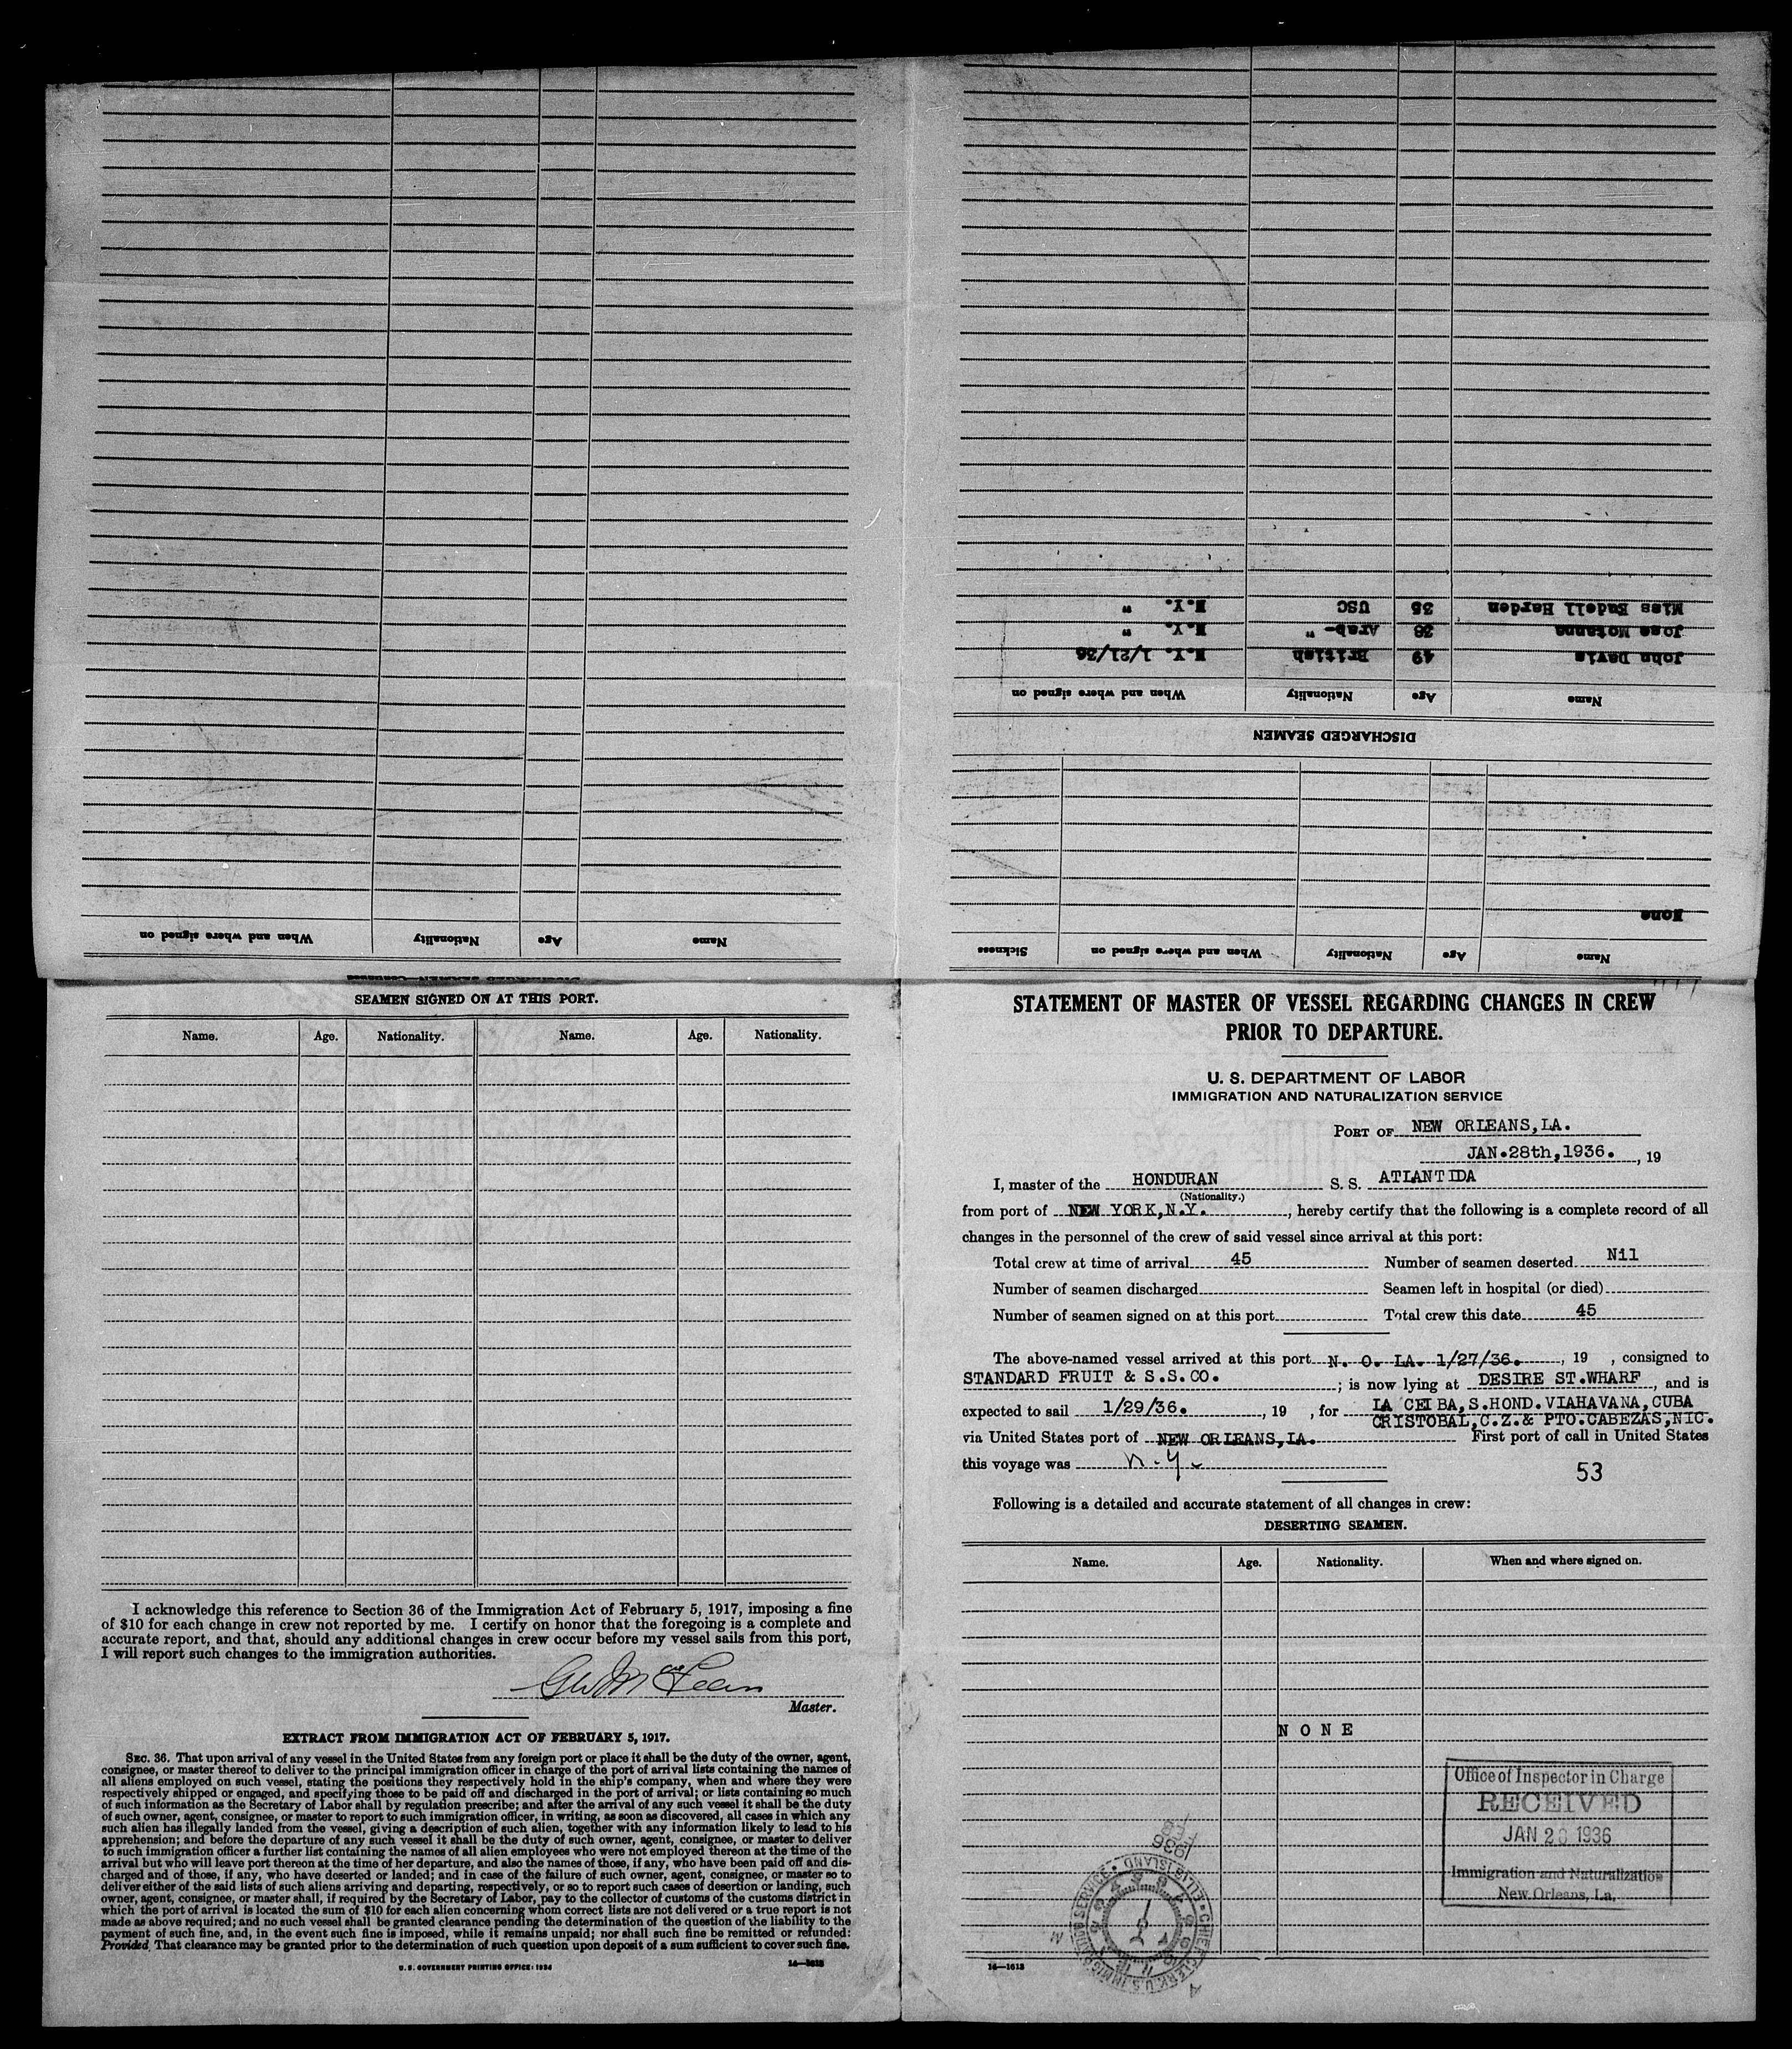 None
Name Age Nationality When and where signed on Sickness
DISCHARGED SEAMEN
Name Age Nationality When and where signed on
John Davis 49 British N.Y. 1/21/36
Jose Motanna 38 Arab- " N.Y. "
Miss Eudell Harden 35 USC N.Y. "
DISCHARGED SEAMEN—Continued
Name Age Nationality When and where signed on
SEAMEN SIGNED ON AT THIS PORT.
Name. Age. Nationality. Name. Age. Nationality.
I acknowledge this reference to Section 36 of the Immigration Act of February 5, 1917, imposing a fine
of $10 for each change in crew not reported by me. I certify on honor that the foregoing is a complete and
accurate report, and that, should any additional changes in crew occur before my vessel sails from this port,
I will report such changes to the immigration authorities.
Master.
EXTRACT FROM IMMIGRATION ACT OF FEBRUARY 5, 1917.
SEC. 36. That upon arrival of any vessel in the United States from any foreign port or place it shall be the duty of the owner, agent,
consignee, or master thereof to deliver to the principal immigration officer in charge of the port of arrival lists containing the names of
all aliens employed on such vessel, stating the positions they respectively hold in the ship's company, when and where they were
respectively shipped or engaged, and specifying those to be paid off and discharged in the port of arrival; or lists containing so much
of such information as the Secretary of Labor shall by regulation prescribe; and after the arrival of any such vessel it shall be the duty
of such owner, agent, consignee, or master to report to such immigration officer, in writing, as soon as discovered, all cases in which any
such alien has illegally landed from the vessel, giving a description of such alien, together with any information likely to lead to his
apprehension; and before the departure of any such vessel it shall be the duty of such owner, agent, consignee, or master to deliver
to such immigration officer a further list containing the names of all alien employees who were not employed thereon at the time of the
arrival but who will leave port thereon at the time of her departure, and also the names of those, if any, who have been paid off and dis-
charged and of those, if any, who have deserted or landed; and in case of the failure of such owner, agent, consignee, or master so to
deliver either of the said lists of such aliens arriving and departing, respectively, or so to report such cases of desertion or landing, such
owner, agent, consignee, or master shall, if required by the Secretary of Labor, pay to the collector of customs of the customs district in
which the port of arrival is located the sum of $10 for each alien concerning whom correct lists are not delivered or a true report is not
made as above required; and no such vessel shall be granted clearance pending the determination of the question of the liability to the
payment of such fine, and, in the event such fine is imposed, while it remains unpaid; nor shall such fine be remitted or refunded:
Provided, That clearance may be granted prior to the determination of such question upon deposit of a sum sufficient to cover such fine.
U. S. GOVERNMENT PRINTING OFFICE: 1934 14—1613
STATEMENT OF MASTER OF VESSEL REGARDING CHANGES IN CREW
PRIOR TO DEPARTURE.
U. S. DEPARTMENT OF LABOR
IMMIGRATION AND NATURALIZATION SERVICE
PORT OF NEW ORLEANS,LA.
JAN.28th,1936. , 19
I, master of the HONDURAN S. S. ATLANTIDA
(Nationality.)
from port of NEW YORK,N.Y. , hereby certify that the following is a complete record of all
changes in the personnel of the crew of said vessel since arrival at this port:
Total crew at time of arrival 45 Number of seamen deserted Nil
Number of seamen discharged Seamen left in hospital (or died)
Number of seamen signed on at this port Total crew this date 45
The above-named vessel arrived at this port N. O. LA. 1/27/36. , 19 , consigned to
STANDARD FRUIT & S.S.CO. ; is now lying at DESIRE ST.WHARF , and is
expected to sail 1/29/36. , 19 , for LA CEIBA,S.HOND.VIAHAVANA,CUBA
CRISTOBAL,C.Z.& PTO.CABEZAS,NIC.
via United States port of NEW ORLEANS,LA. First port of call in United States
this voyage was N.Y.
53
Following is a detailed and accurate statement of all changes in crew:
DESERTING SEAMEN.
Name. Age. Nationality. When and where signed on.
NONE
Office of Inspector in Charge
RECEIVED
JAN 28 1936
Immigration and Naturalization
New Orleans, La.
1936
CHIEF CLERK U.S. IMMIGRATION SERVICE · ELLIS ISLAND
14—1613